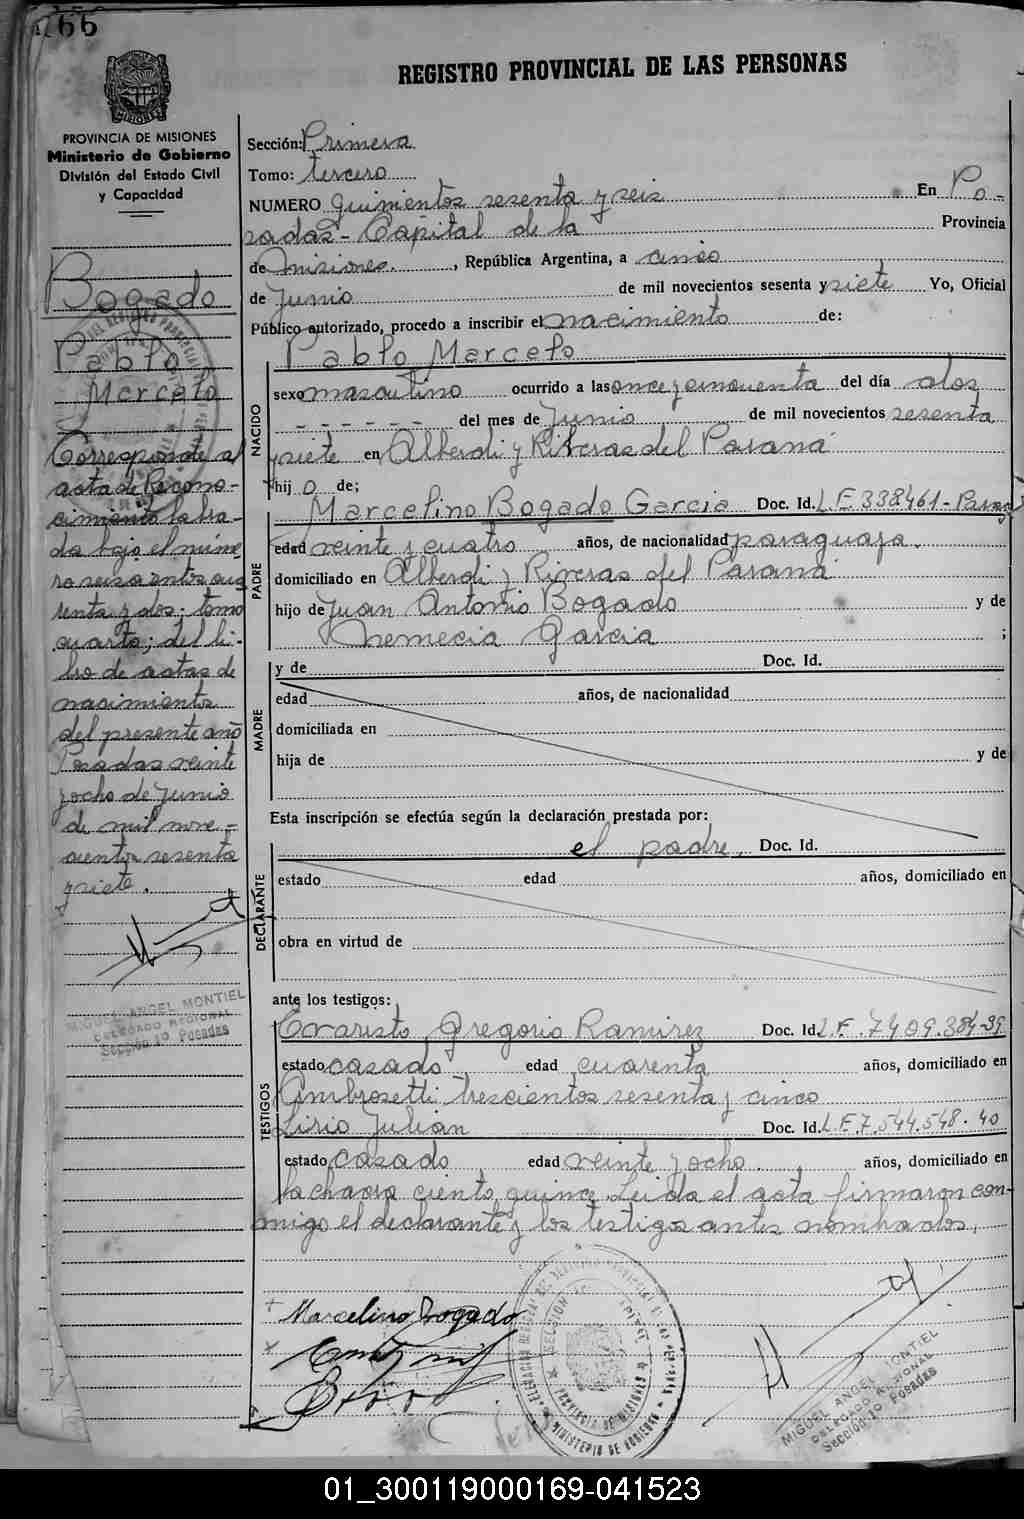 566
REGISTRO PROVINCIAL DE LAS PERSONAS
PROVINCIA DE MISIONES
Ministerio de Gobierno
División del Estado Civil
y Capacidad
Bogado
Pablo
Marcelo
Corresponde al
acta de Recono-
cimiento labra-
da bajo el núme
ro seiscientos cua
renta y dos; tomo
cuarto; del li-
bro de actas de
nacimientos
del presente año
Posadas veinte
y ocho de Junio
de mil nove-
cientos sesenta
y siete.
MIGUEL ANGEL MONTIEL
DELEGADO REGIONAL
Sección 1º Posadas
Sección: Primera
Tomo: tercero
NUMERO quinientos sesenta y seis En Po-
sadas - Capital de la Provincia
de Misiones, República Argentina, a cinco
de Junio de mil novecientos sesenta y siete Yo, Oficial
Público autorizado, procedo a inscribir el nacimiento de:
Pablo Marcelo
NACIDO
sexo masculino ocurrido a las once y cincuenta del día dos
- - - - - - del mes de Junio de mil novecientos sesenta
y siete en Alberdi y Riveras del Paraná
hijo de;
PADRE
Marcelino Bogado Garcia Doc. Id. L.E. 338461-
edad veinte y cuatro años, de nacionalidad paraguaya.
domiciliado en Alberdi y Riveras del Paraná
hijo de Juan Antonio Bogado y de
Nemecia Garcia ;
MADRE
y de Doc. Id.
edad años, de nacionalidad
domiciliada en
hija de y de
Esta inscripción se efectúa según la declaración prestada por:
DECLARANTE
el padre. Doc. Id.
estado edad años, domiciliado en
obra en virtud de
ante los testigos:
TESTIGOS
Evaristo Gregorio Ramirez Doc. Id. L.E. 7409.384-39
estado casado edad cuarenta años, domiciliado en
Ambrosetti trescientos sesenta y cinco
Lirio Julian Doc. Id. L.E. 7.544.548-40
estado casado edad veinte y ocho. años, domiciliado en
la chacra ciento quince. Leida el acta firmaron con-
migo el declarante y los testigos antes nombrados.
Marcelino Bogado
MIGUEL ANGEL MONTIEL
DELEGADO REGIONAL
Sección 1º Posadas
PROVINCIA DE MISIONES
MINISTERIO DE GOBIERNO
01_300119000169-041523